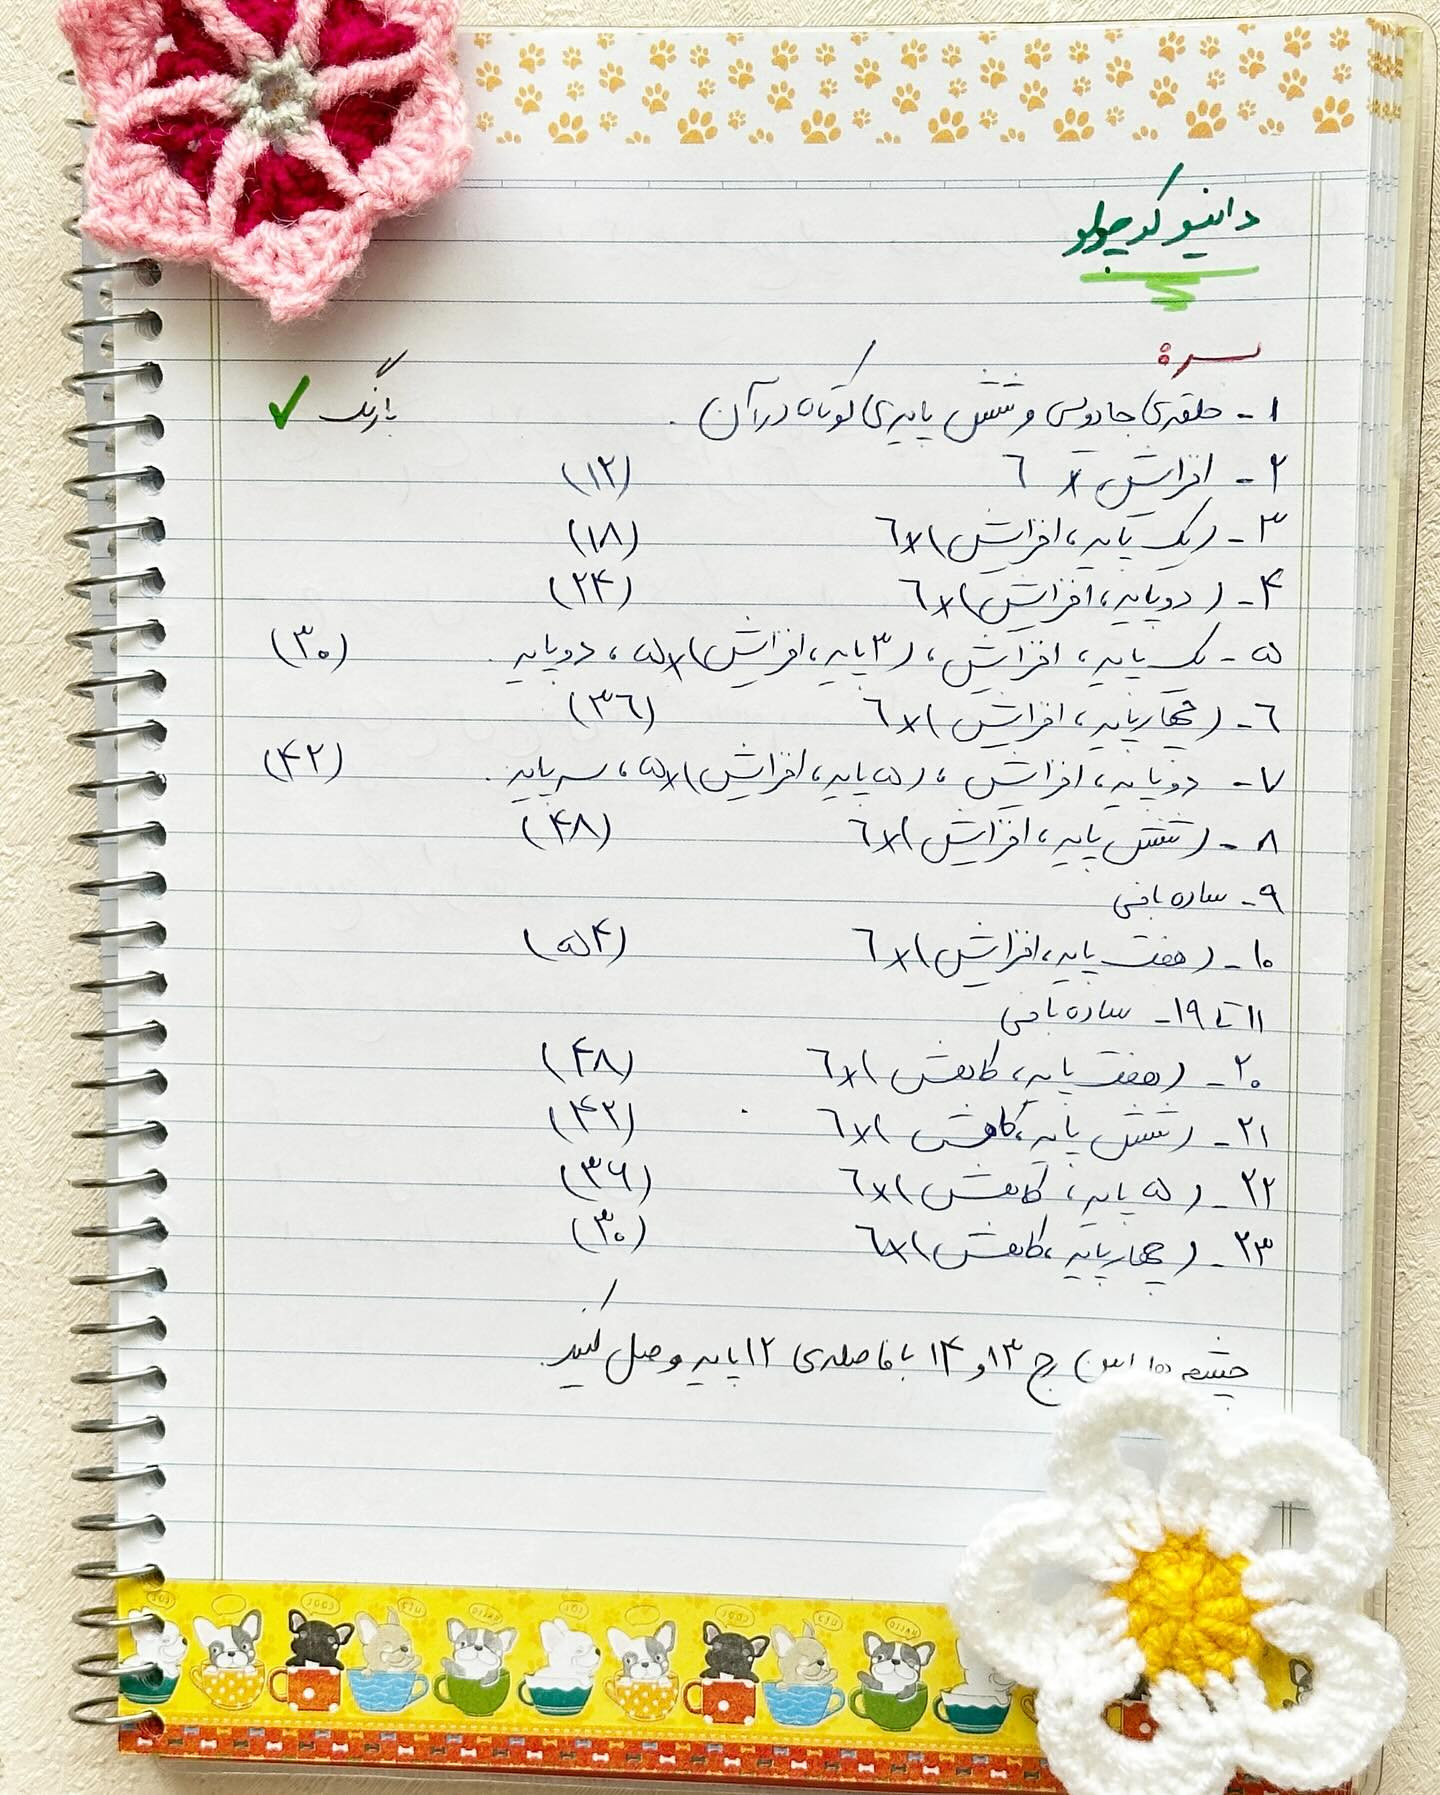 داینو کوچولو
سر:
۱- حلقه‌ی جادویی و شش پایه‌ی کوتاه در آن. با رنگ ✓
۲- افزایش × ٦ (۱۲)
۳- (یک پایه، افزایش)×٦ (۱۸)
۴- (دو پایه، افزایش)×٦ (۲۴)
۵- یک پایه، افزایش، (۳ پایه، افزایش)×۵، دو پایه. (۳۰)
٦- (چهار پایه، افزایش)×٦ (۳٦)
۷- دو پایه، افزایش، (۵ پایه، افزایش)×۵، سه پایه. (۴۲)
۸- (شش پایه، افزایش)×٦ (۴۸)
۹- ساده بافی
۱۰- (هفت پایه، افزایش)×٦ (۵۴)
۱۱ تا ۱۹- ساده بافی
۲۰- (هفت پایه، کاهش)×٦ (۴۸)
۲۱- (شش پایه، کاهش)×٦ (۴۲)
۲۲- (۵ پایه، کاهش)×٦ (۳۶)
۲۳- (چهار پایه، کاهش)×٦ (۳۰)
چشم ها بین رج ۱۳ و ۱۴ با فاصله‌ی ۱۲ پایه وصل کنید.